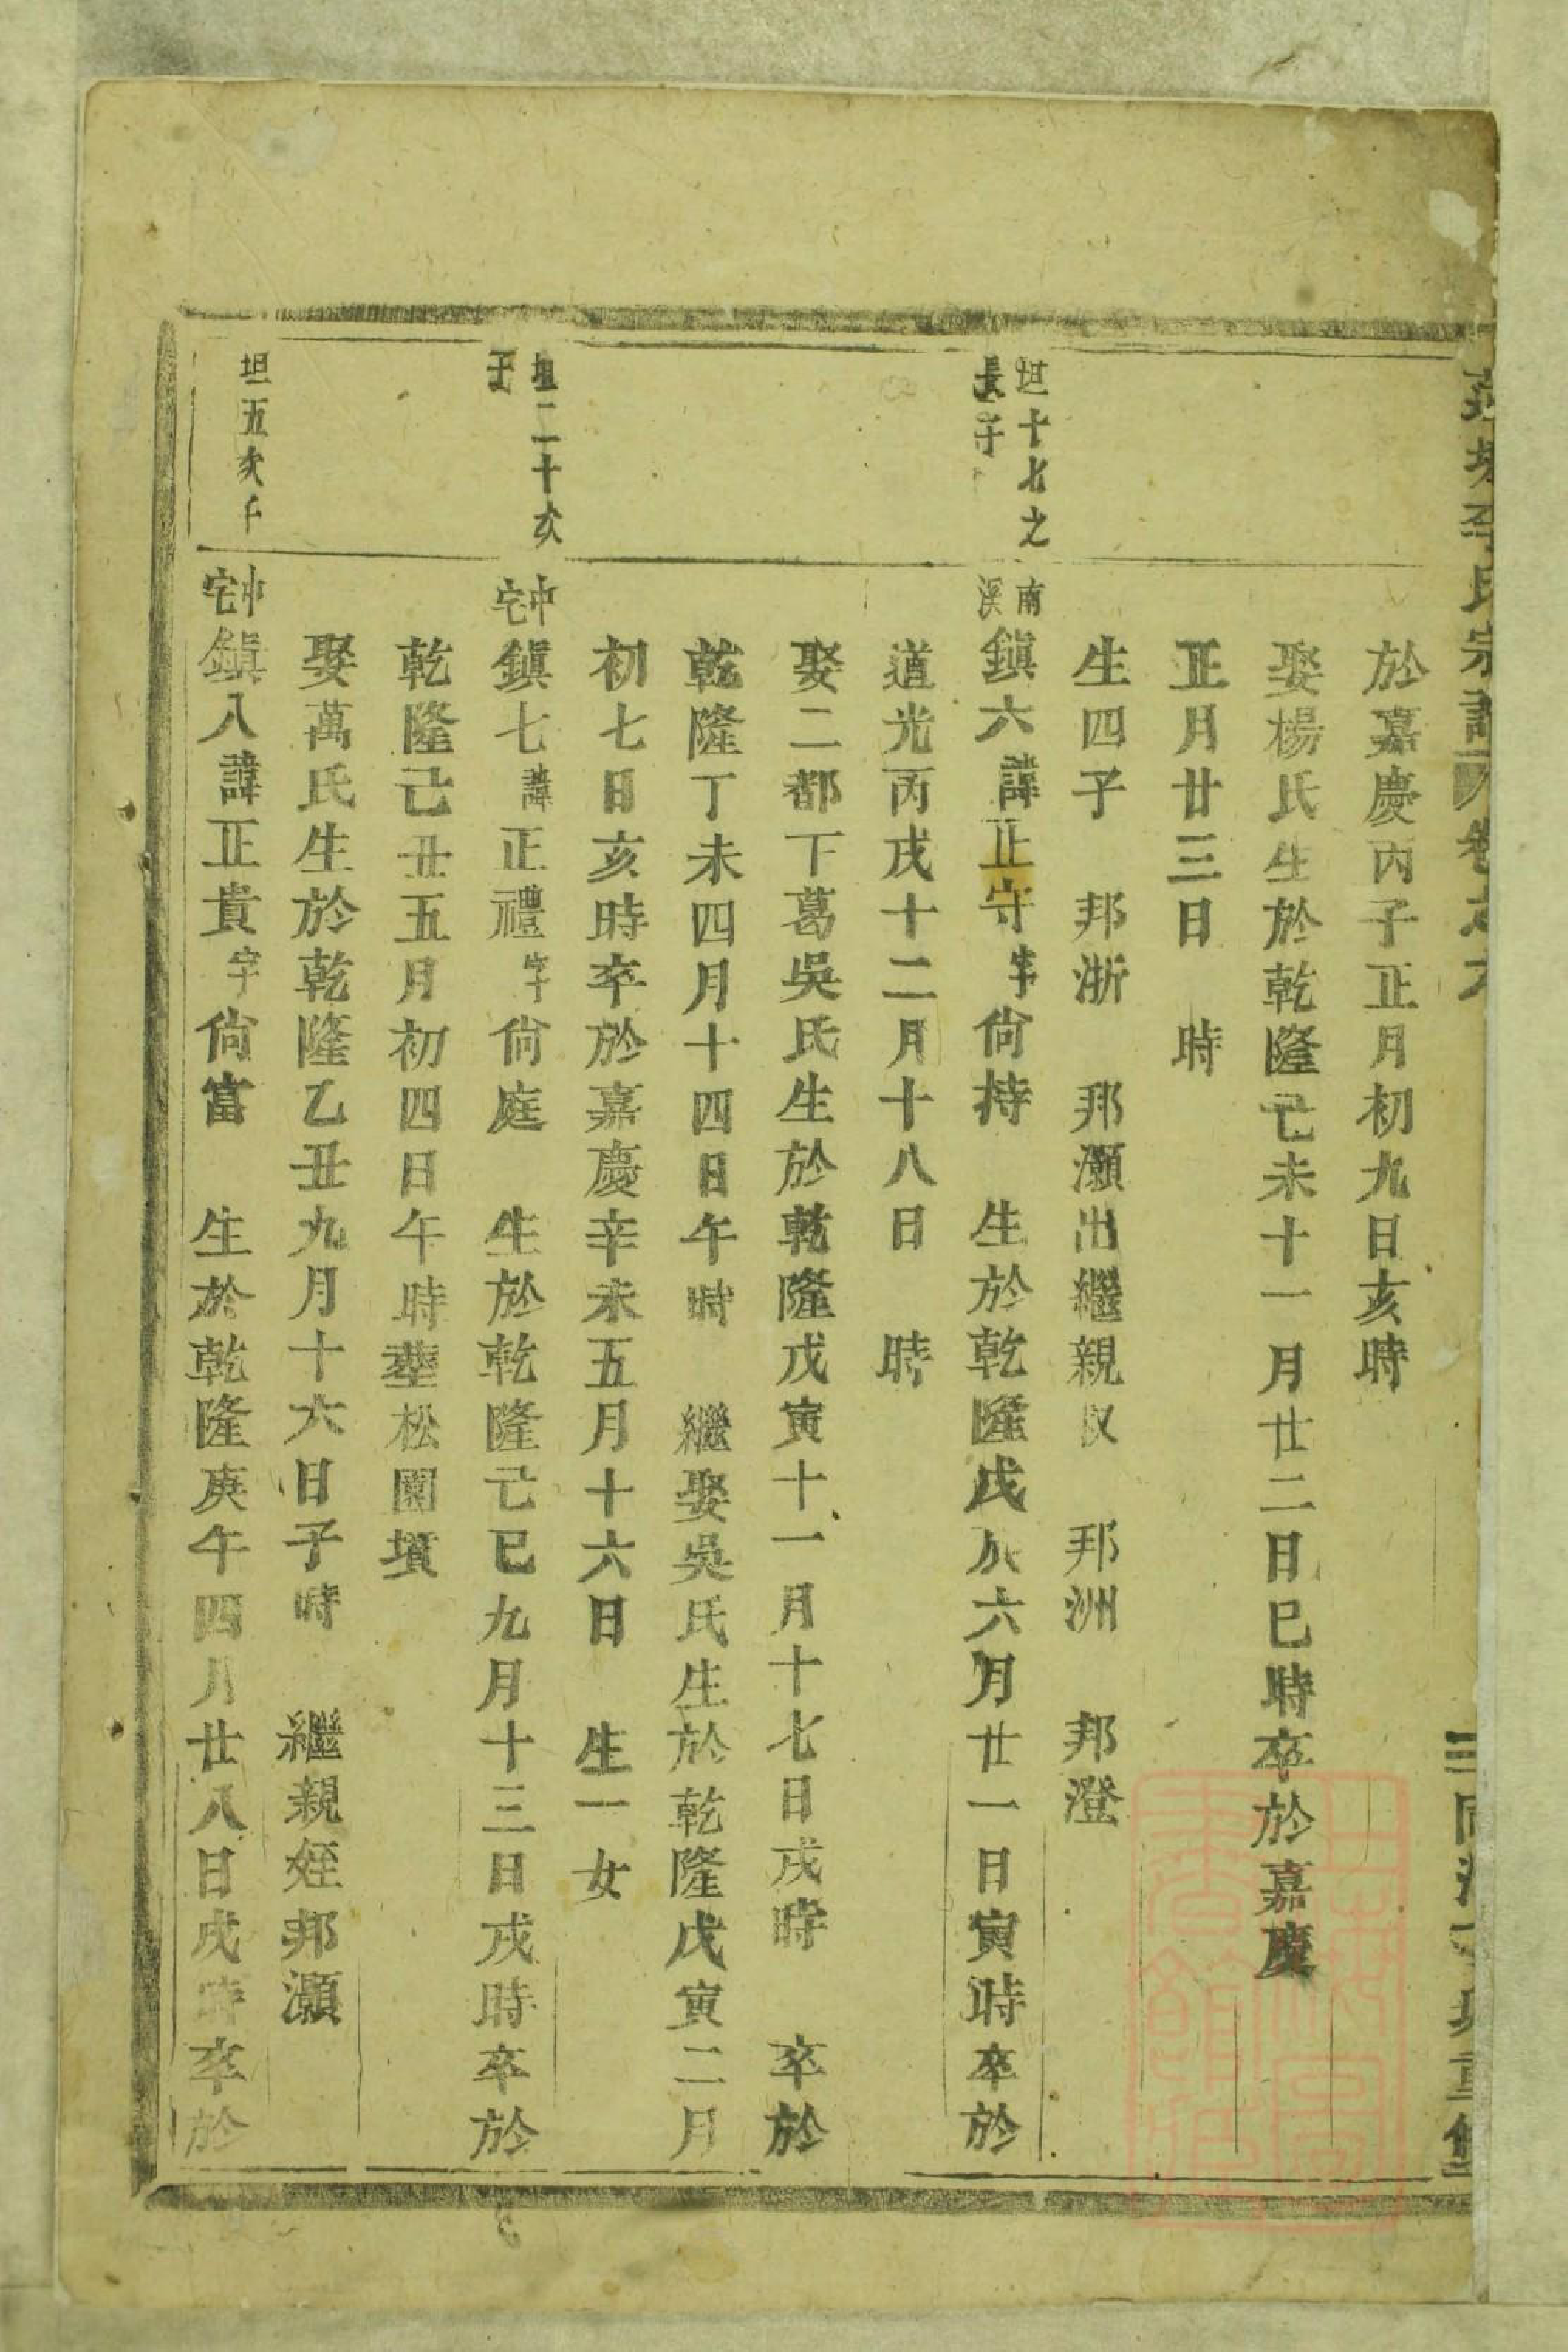 李氏宗譜 卷之六
於嘉慶丙子正月初九日亥時
娶楊氏生於乾隆己未十一月廿二日巳時卒於嘉慶
正月廿三日 時
生四子 邦浙 邦灝出繼親叔 邦洲 邦澄
坦十七之
長子
南溪鎮六諱正守字尙持 生於乾隆戊辰六月廿一日寅時卒於
道光丙戌十二月十八日 時
娶二都下葛吳氏生於乾隆戊寅十一月十七日戌時 卒於
乾隆丁未四月十四日午時 繼娶吳氏生於乾隆戊寅二月
初七日亥時卒於嘉慶辛未五月十六日 生一女
坦二十次
子
中宅鎮七諱正禮字尙庭 生於乾隆己巳九月十三日戌時卒於
乾隆己丑五月初四日午時塟松園墳
娶萬氏生於乾隆乙丑九月十六日子時 繼親姪邦灝
坦五次子
中宅鎮八諱正貴字尙富 生於乾隆庚午四月廿八日戌時卒於